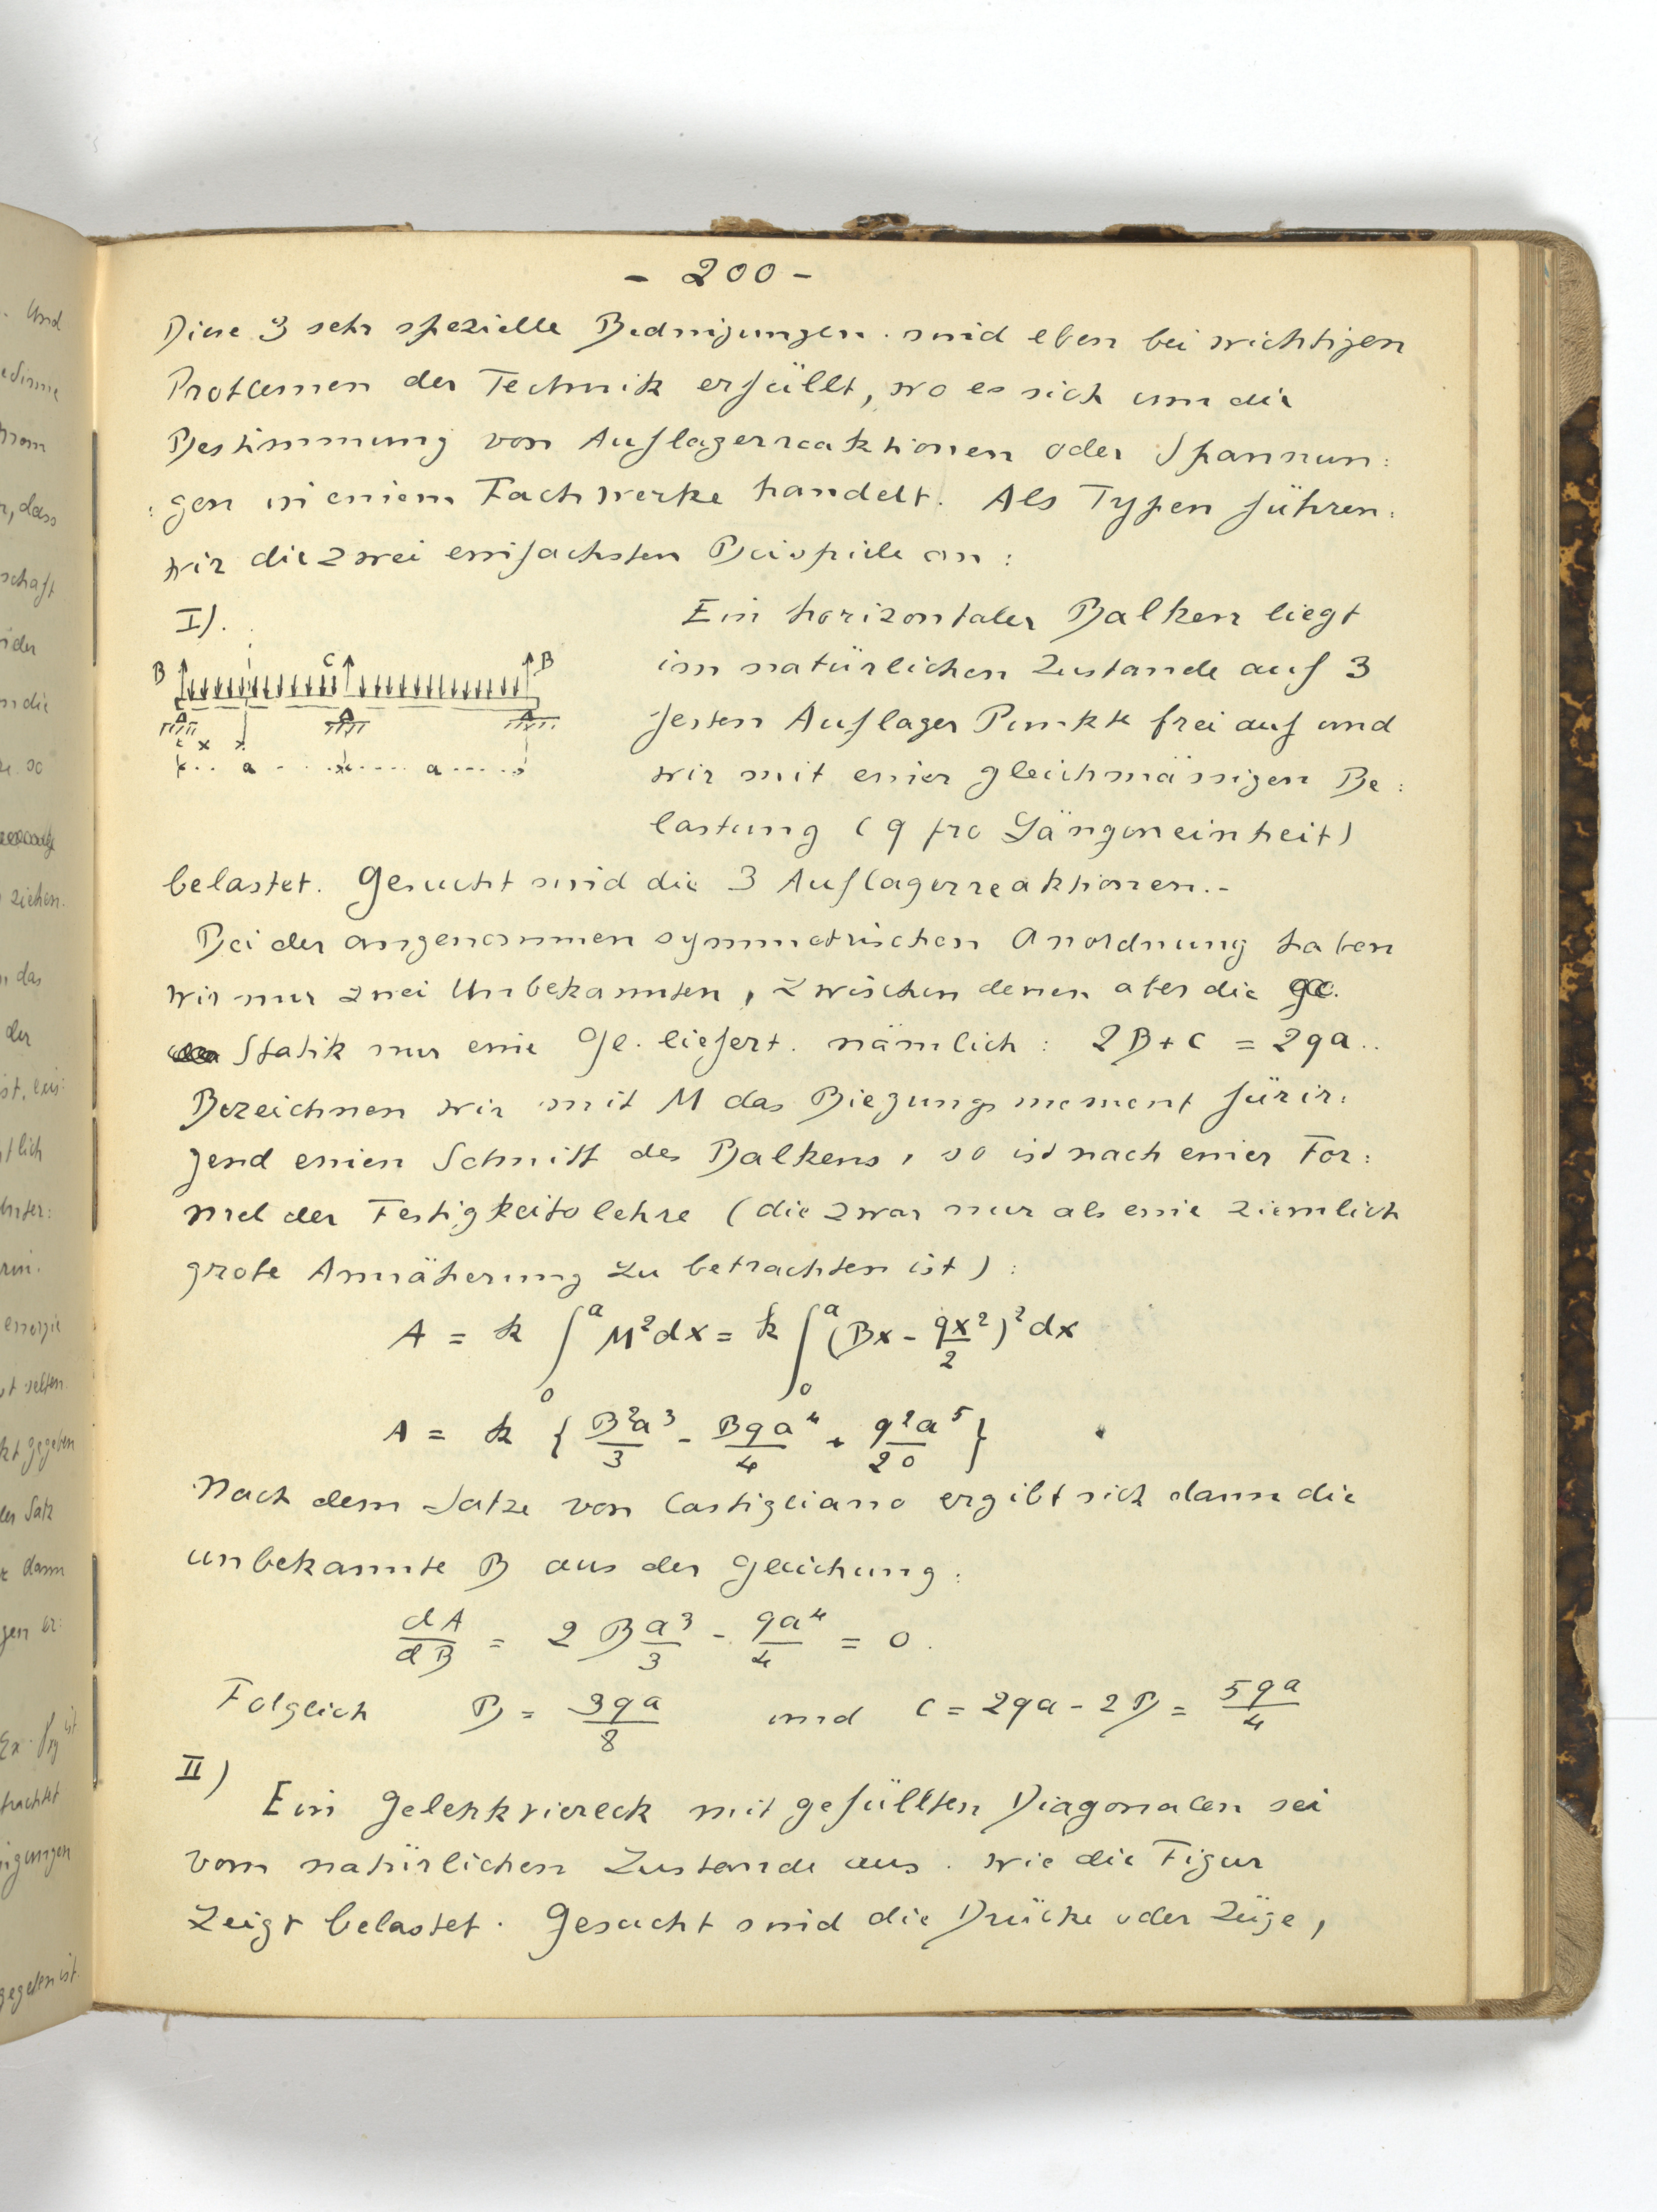 - 200 -
Diese 3 sehr spezielle Bedingungen sind eben bei wichtigen
Problemen der Technik erfüllt, wo es sich um die
Bestimmung von Auflagerreaktionen oder Spannun:
: gen in einem Fachwerke handelt. Als Typen führen
wir die zwei einfachsten Beispiele an :
I).
B C B
x
a a
Ein horizontaler Balken liegt
im natürlichen Zustande auf 3
festen Auflager Punkte frei auf und
wir mit einer gleichmässigen Be:
lastung (q pro Längeneinheit)
belastet. Gesucht sind die 3 Auflagerreaktionen.-
Bei der angenommen symmetrischen Anordnung haben
wir nur zwei Unbekannten, zwischen denen aber die
Statik nur eine Gl. liefert. nämlich : 2B + C = 2qa..
Bezeichnen wir mit M das Biegungsmoment für ir:
gend einen Schnitt des Balkens, so ist nach einer For:
mel der Festigkeitslehre (die zwar nur als eine ziemlich
grobe Annäherung zu betrachten ist) :
A = k ∫₀ᵃ M² dx = k ∫₀ᵃ (Bx - qx²/2)² dx
A = k { B²a³/3 - Bqa⁴/4 + q²a⁵/20 }
Nach dem Satze von Castigliano ergibt sich dann die
unbekannte B aus der Gleichung :
dA/dB = 2B a³/3 - qa⁴/4 = 0.
Folglich B = 3qa/8 und C = 2qa - 2B = 5qa/4
II)
Ein Gelenkviereck mit gefüllten Diagonalen sei
vom natürlichen Zustande aus. wie die Figur
Zeigt belastet. Gesucht sind die Drücke oder Züge,